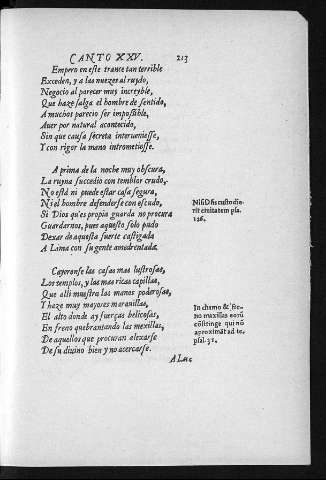 CANTO XXV. 213
Empero en este trance tan terrible
Exceden, y a las nuezes al ruydo,
Negocio al parecer muy increyble,
Que haze salga el hombre de sentido,
A muchos parecio ser impossible,
Auer por natural acontecido,
Sin que causa secreta interuiniesse,
Y con rigor la mano intrometiesse.
A prima de la noche muy obscura,
La ruyna succedio con temblor crudo,
No está ni puede estar casa segura,
Ni el hombre defenderse con escudo,
Si Dios qu'es propia guarda no procura
Guardarnos, pues aquesto solo pudo
Dexar de aquesta suerte castigada
A Lima con su gente amedrentada.
Nisi Dñs custodie-
rit ciuitatem psa.
126.
Cayeronse las casas mas lustrosas,
Los templos, y las mas ricas capillas,
Que alli muestra las manos poderosas,
Y haze muy mayores marauillas,
El alto donde ay fuerças belicosas,
En freno quebrantando las mexillas,
De aquellos que procuran alexarse
De su diuino bien y no acercarse.
In chamo & fre-
no maxillas eorũ
cõstringe qui nõ
aproximãt ad te,
psal. 31.
A Luc